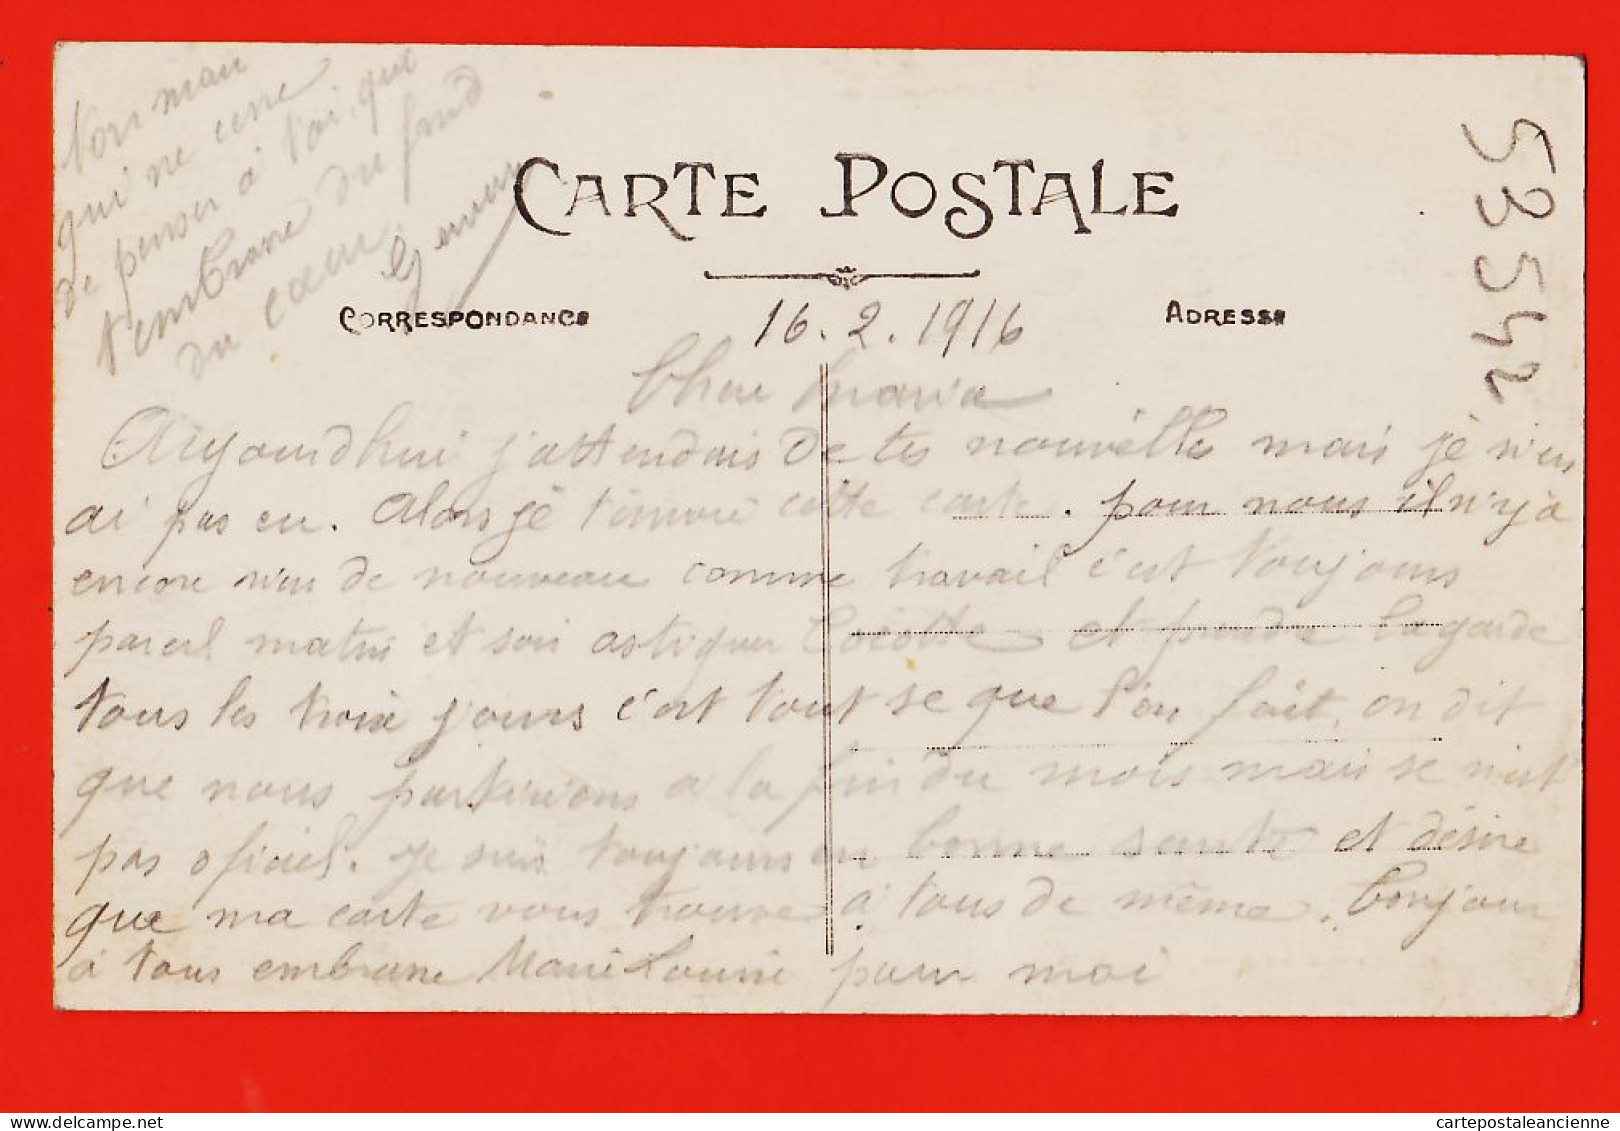 CARTE POSTALE
CORRESPONDANCE
ADRESSE
53542
16.2.1916
Chere Maria
Aujourdhui j'attendais de tes nouvélles mais jé n'en
ai pas eu. Alors jé t'envoie cette carte. pour nous il n'y a
encore rien de nouveau comme travail c'est toujours
pareil matin et soir astiquer Cocotte et prendre la garde
tous les trois jours c'est tout se que l'on fait, on dit
que nous partirions a la fin du mois mais se n'est
pas oficiel. je suis toujours en bonne santé et désire
que ma carte vous trouve à tous de même. Bonjour
à tous embrasse Marie Louise pour moi
ton mari
qui ne cesse
de penser à toi, que
t'embrasse du fond
du cœur
cartepostaleancienne.fr
cartepostaleancienne